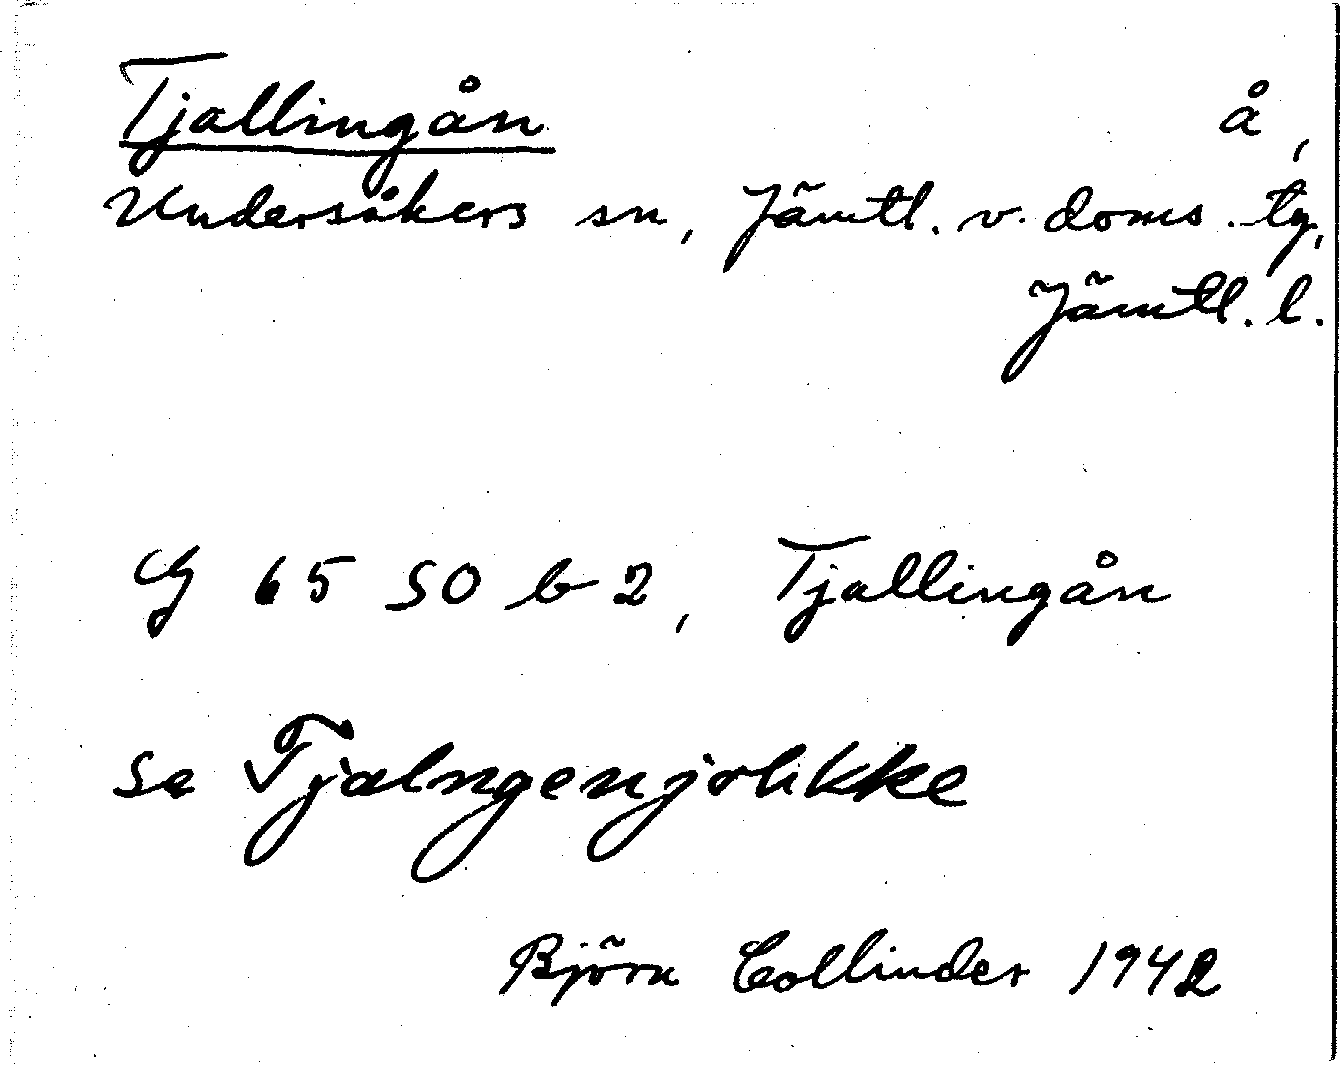 Tjallingån å,
Undersåkers sn, Jämtl. v. doms. tg,
Jämtl. l.
65 50 b 2, Tjallingån
se Tjalngenjohkke
Björn Collinder 1942